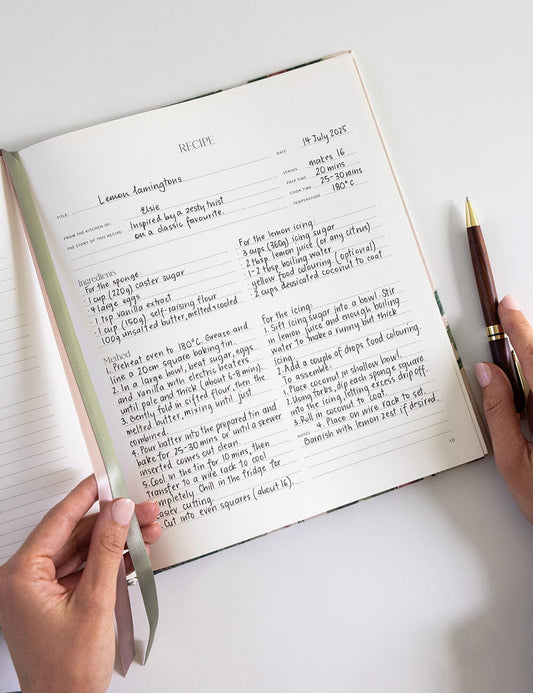 RECIPE
DATE 14 July 2025
TITLE: Lemon lamingtons
SERVES makes 16
FROM THE KITCHEN OF: Elsie
PREP TIME 20 mins
THE STORY OF THIS RECIPE: Inspired by a zesty twist
COOK TIME 25-30 mins
on a classic favourite.
TEMPERATURE 180°C
Ingredients
For the sponge:
1 cup (220g) caster sugar
4 large eggs
1 tsp vanilla extract
1 cup (150g) self-raising flour
100g unsalted butter, melted & cooled
For the lemon icing:
3 cups (360g) icing sugar
2 tbsp lemon juice (or any citrus)
1-2 tbsp boiling water
yellow food colouring (optional)
2 cups desicated coconut to coat
Method
1. Preheat oven to 180°C. Grease and
line a 20cm square baking tin.
2. In a large bowl, beat sugar, eggs
and vanilla with electric beaters
until pale and thick (about 6-8 mins).
3. Gently fold in sifted flour, then the
melted butter, mixing until just
combined.
4. Pour batter into the prepared tin and
bake for 25-30 mins or until a skewer
inserted comes out clean.
5. Cool in the tin for 10 mins, then
transfer to a wire rack to cool
mpletely. Chill in the fridge for
easier cutting.
Cut into even squares (about 16).
For the icing:
1. Sift icing sugar into a bowl. Stir
in lemon juice and enough boiling
water to make a runny but thick
icing.
2. Add a couple of drops food colouring.
To assemble:
1. Place coconut in shallow bowl.
2. Using forks, dip each sponge square
into the icing, letting excess drip off.
3. Roll in coconut to coat.
NOTES 4. Place on wire rack to set.
Garnish with lemon zest if desired.